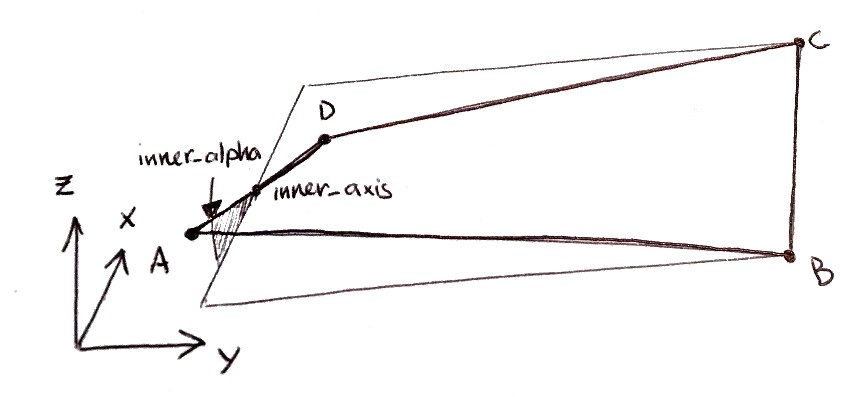 C
D
inner_alpha
inner_axis
Z
X
A
B
Y